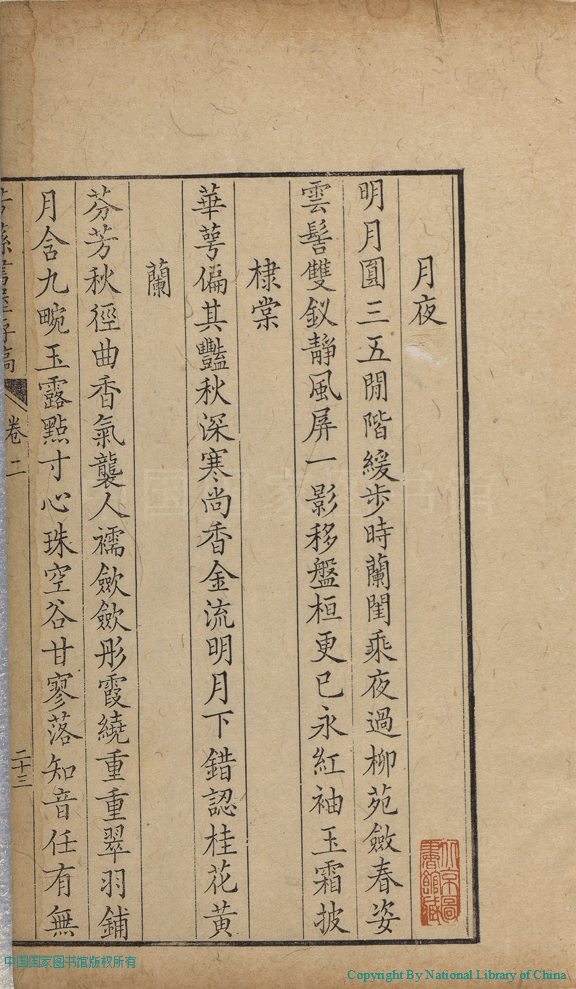 月夜
明月圓三五閒階緩步時蘭閨乘夜過柳苑斂春姿
雲髻雙釵靜風屏一影移盤桓更已永紅袖玉霜披
棣棠
華萼偏其豔秋深寒尚香金流明月下錯認桂花黃
蘭
芬芳秋徑曲香氣襲人襦歛歛彤霞繞重重翠羽鋪
月含九畹玉露點寸心珠空谷甘寥落知音任有無
卷二
二十三
北京圖書館藏
中国国家图书馆版权所有
Copyright By National Library of China